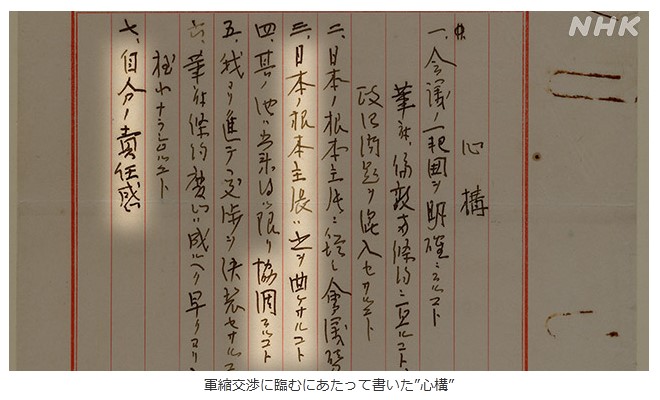 NHK
心構
一、会議ノ範囲ヲ明確ニスルコト
華府、倫敦両条約ニ亘ルコト、
政治問題ヲ混入セサルコト
二、日本ノ根本主張ニ 会議
三、日本ノ根本主張ハ之ヲ曲ケサルコト
四、其ノ他ハ出来得ル限リ協調スルコト
五、我ヨリ進テ交渉ヲ決裂セサル
六、華府條約廃止ハ成ルヘク早ク
ナラシムルコト
七、自分ノ責任感
軍縮交渉に臨むにあたって書いた“心構”